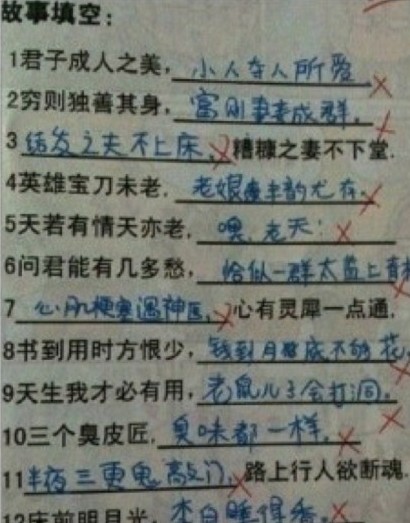 故事填空：
1君子成人之美，小人夺人所爱
2穷则独善其身，富则妻妾成群。
3结发之夫不上床，糟糠之妻不下堂.
4英雄宝刀未老，老娘丰韵尤存.
5天若有情天亦老，噢，老天！
6问君能有几多愁，恰似一群太监上青
7心肌梗塞遇神医，心有灵犀一点通.
8书到用时方恨少，钱到月底不够花
9天生我才必有用，老鼠儿子会打洞.
10三个臭皮匠，臭味都一样.
11半夜三更鬼敲门，路上行人欲断魂.
12床前明月光，李白睡得香.